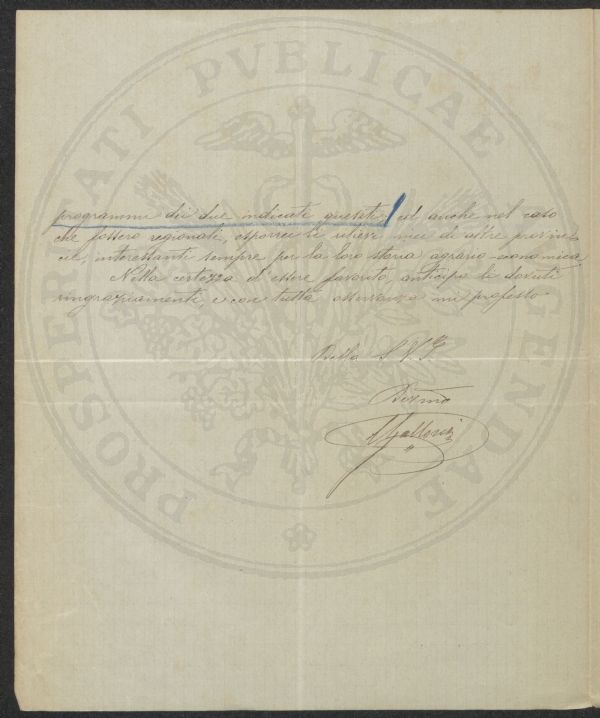 PROSPERITATI PVBLICAE AVGENDAE
programmi dei due indicati quesiti, ed anche nel caso
che fossero regionali, esporrei le miei di altre provin-
cie, interessanti sempre per la loro storia agrario-economica.
Nella certezza d'essere favorito, anticipo li dovuti
ringraziamenti, e con tutta osservanza mi professo
Della S. V. Ill
Devmo